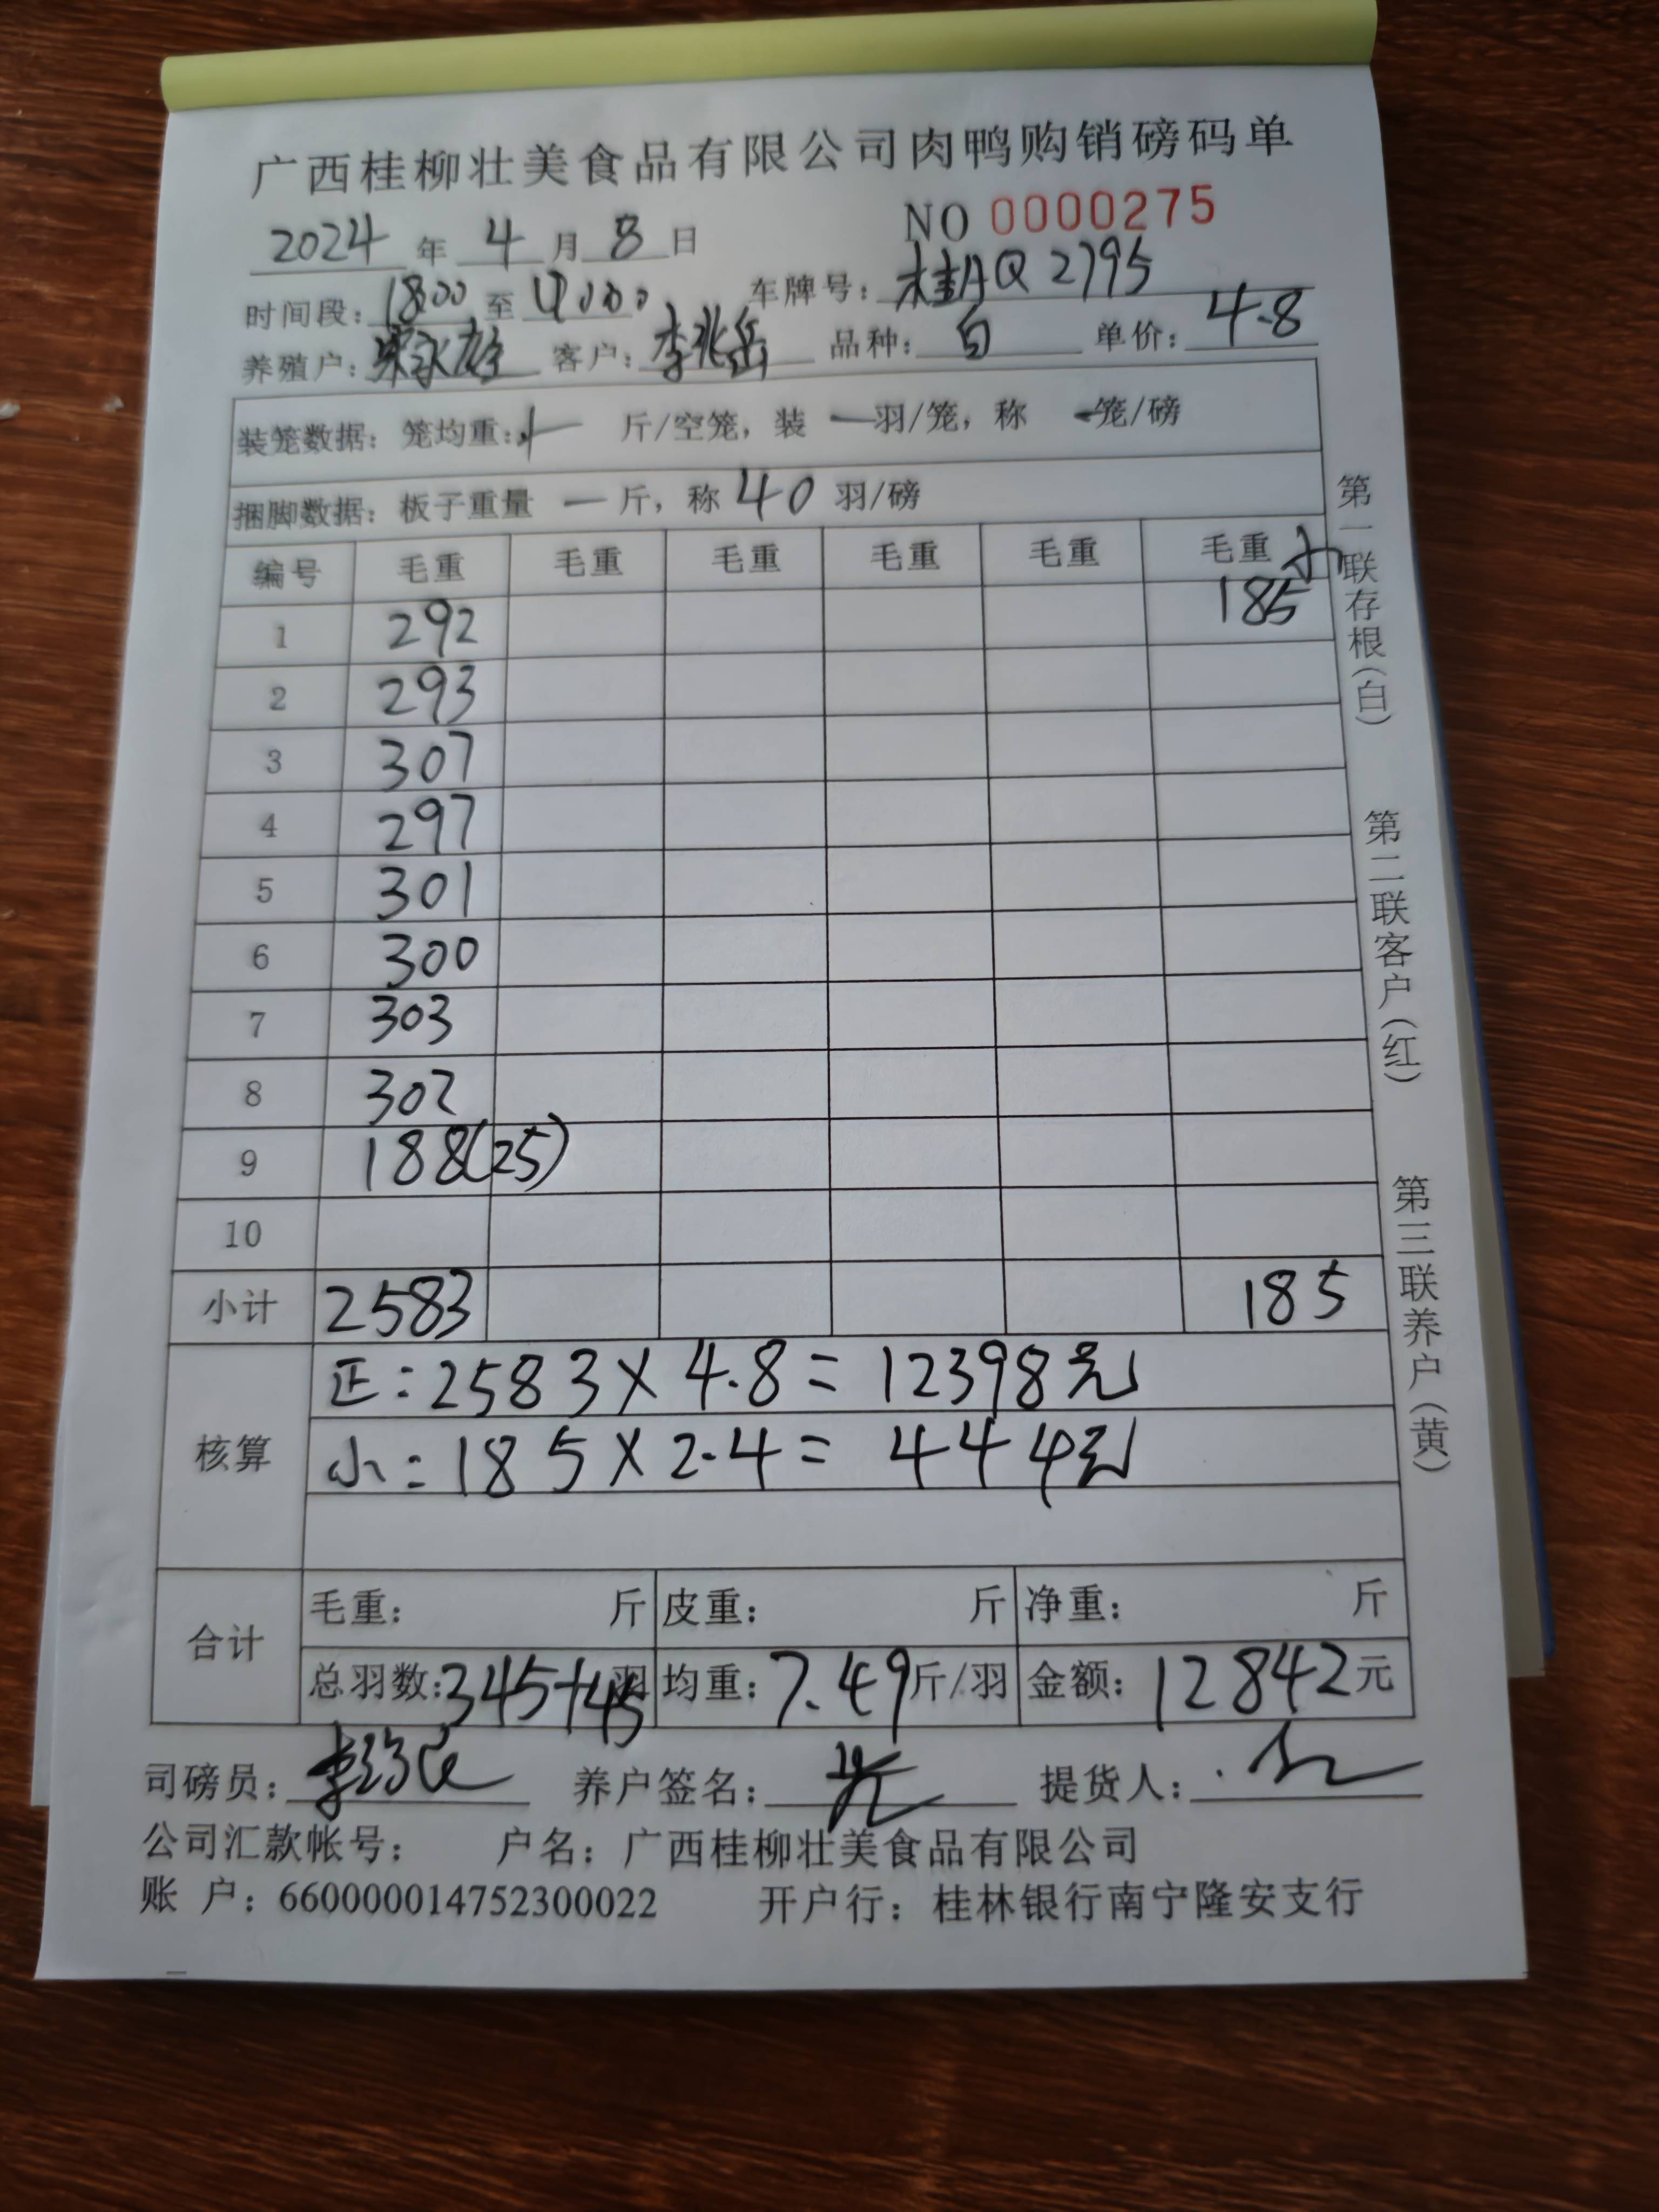 广西桂柳壮美食品有限公司肉鸭购销磅码单
NO 0000275
2024 年 4 月 8 日
时间段: 1800 至 车牌号: 桂AQ2795
养殖户: 客户: 李兆岳 品种: 白 单价: 4.8
装笼数据: 笼均重: 斤/空笼, 装 一 羽/笼, 称 一 笼/磅
捆脚数据: 板子重量 一 斤, 称 40 羽/磅
编号 毛重 毛重 毛重 毛重 毛重 毛重 小
1 292 185
2 293
3 307
4 297
5 301
6 300
7 303
8 302
9 188(25)
10
小计 2583 185
核算
正: 2583×4.8=12398元
小: 185×2.4=444元
合计
毛重: 斤 皮重: 斤 净重: 斤
总羽数: 345+45 羽 均重: 7.49 斤/羽 金额: 12842 元
司磅员: 养户签名: 提货人:
公司汇款帐号: 户名: 广西桂柳壮美食品有限公司
账 户: 660000014752300022 开户行: 桂林银行南宁隆安支行
第一联存根(白)
第二联客户(红)
第三联养户(黄)